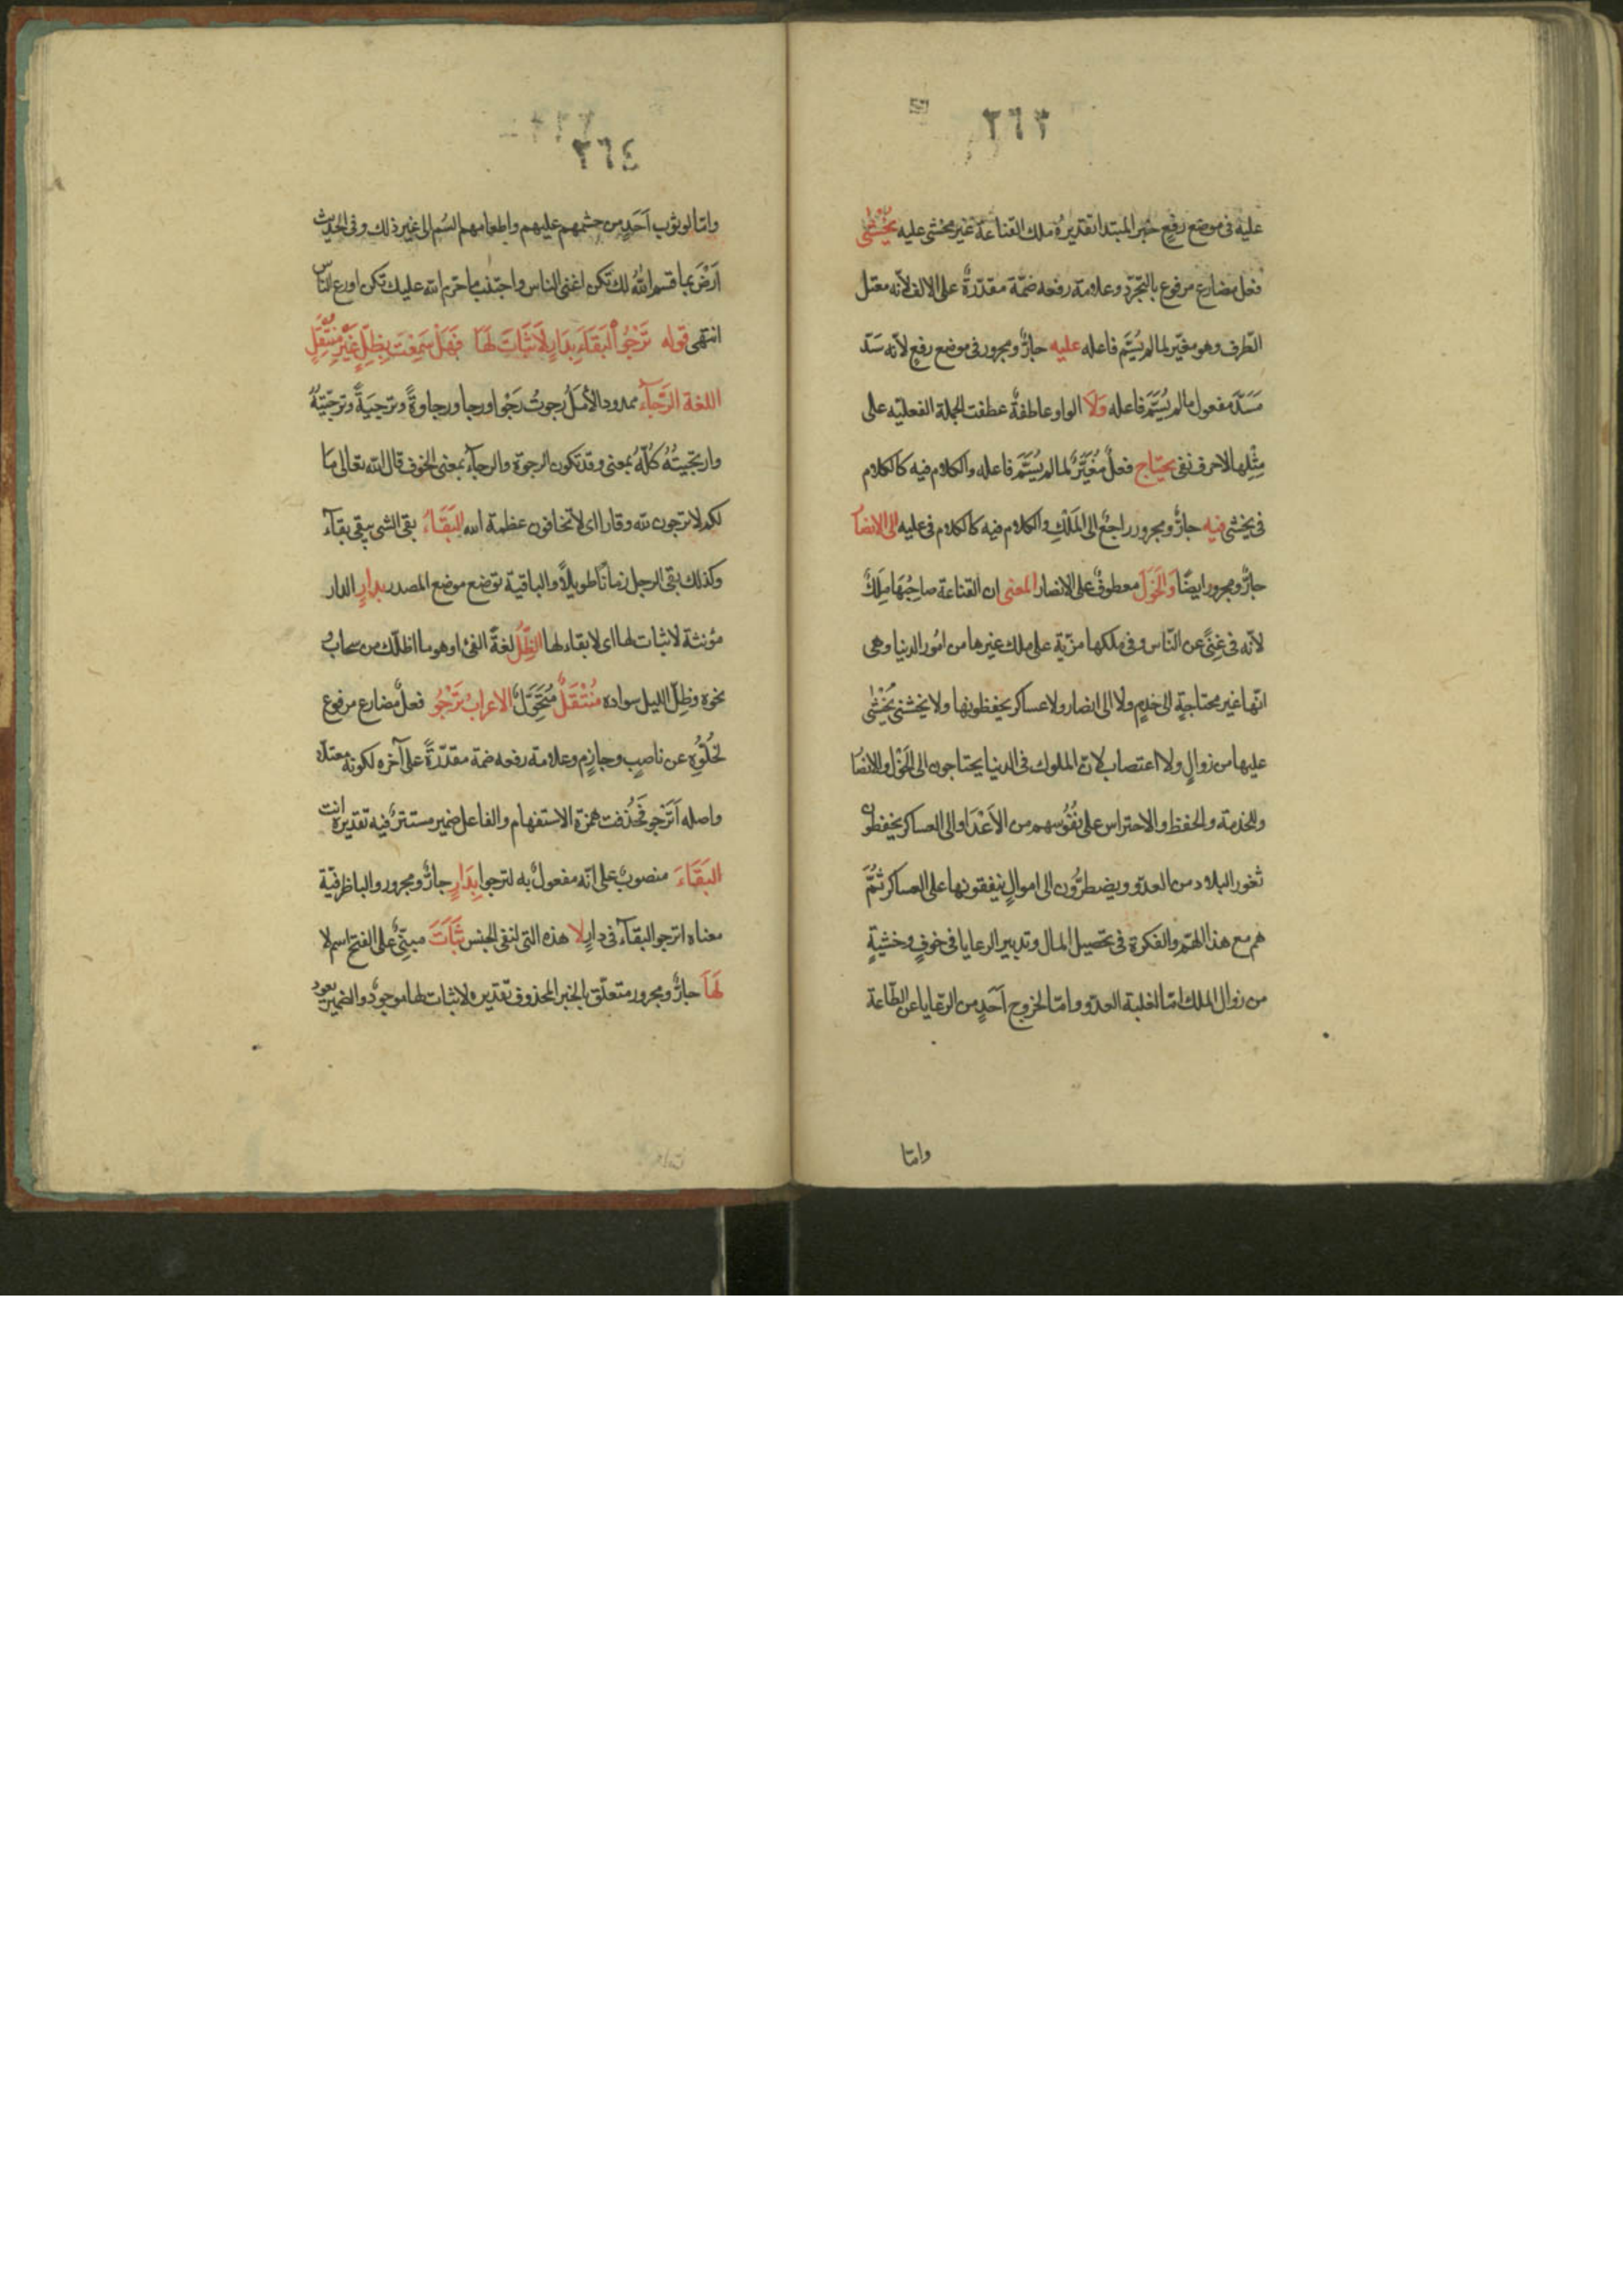 ٢٦٣
عليه فى موضع رفع خبر المبتدا تقديره ملك القناعة غير مخشى عليه يُخْشٰى
فعل مضارع مرفوع بالتجرّد وعلامة رفعه ضمّة مقدّرةٌ على الالف لانّه معتل
الطّرف وهو مغيّر لما لم يُسَمَّ فاعله عليه جارٌّ ومجرور فى موضع رفع لانّه سَدّ
مَسَدَّ مفعول ما لم يُسَمَّ فاعله وَلَا الواو عاطفةٌ عطفت الجملة الفعليّه على
مِثْلِها لا حرف نفى يحتاج فعلٌ مُغَيَّرٌ لما لم يُسَمَّ فاعله والكلام فيه كالكلام
فى يخشى فيه جارٌّ ومجرور راجعٌ الى المَلْكِ والكلام فيه كالكلام فى عليه الى الانصا
جارٌّ ومجرور ايضًا وَالخَوَلَ معطوفٌ على الانصار المعنى ان القناعة صاحِبُهَا مَلِكٌ
لانّه فى غِنًى عن النّاس وفى ملكها مزيّة على ملك غيرها من امُور الدنيا وهى
انّها غير محتاجةٍ الى خدمٍ ولا الى انصار ولا عساكر يحفظونها ولا يخشى يُخْشٰى
عليها من زوالٍ ولا اغتصاب لانّ الملوك فى الدنيا يحتاجون الى الخَوَل والانصا
وللخدمة والحفظ والاحتراس على نُفُوسهم من الأَعْدَا والى العساكر يحفظون
ثغور البلاد من العدّو ويضطرُّون الى اموالٍ ينفقونها على العساكر ثُمَّ
هم مع هذا الهّم والفكرة فى تحصيل المال وتدبير الرعايا فى خوفٍ وخشيةٍ
من زوال الملك امّا لغلبة العدّو وامّا لخروج أحَدٍ من الرّعايا عن الطّاعة
وامّا
٢٦٤
وامّا لوثوب أَحَدٍ من حشمهم عليهم واطعامهم السُم الى غير ذلك وفى الحديث
اَرْضَ بما قسم اللهُ لك تكن اغنى الناس واجتنب ما حرّم الله عليك تكن اورع النّاس
انتهى قوله تَرْجُو الْبَقَاءَ بِدَارٍ لَا ثَبَاتَ لَهَا فَهَلْ سَمِعْتَ بِظِلٍّ غَيْرِ مُنْتَقِلٍ
اللغة الرَّجآء ممدود الأمَلُ رجوتُ رَجْوا ورجا ورجاوةً وترجيَةً وترجّيتهُ
وارتجيتُهُ كُلّهُ بمعنى وقد تكون الرجوة والرجآء بمعنى الخوف قال الله تعالى مَا
لكم لا ترجون لله وقارا اى لا تخافون عظمة الله البَقَاءُ بقى الشى يبقى بقآء
وكذلك بقى الرجل زمانًا طويلًا والباقية توضع موضع المصدر بدارٍ الدار
مؤنثة لا ثبات لها اى لا بقاء لها الظِّلُ لغةً الفئ او هو ما اظلّك من سحابٍ
نحوه وظِلّ الليل سواده مُنْتَقَلٌ مُتَحَوَّلٌ الاعرابُ تَرْجُو فعلٌ مضارع مرفوع
لخُلُوِّه عن ناصبٍ وجازمٍ وعلامة رفعه ضمة مقدّرةً على آخره لكونه معتلّا
واصله أَتَرْجو فحُذفت همزة الاستفهام والفاعل ضمير مستترٌ فيه تقديره انت
البَقَاءَ منصوبٌ على انّه مفعولٌ به لترجوا بِدَارٍ جارٌّ ومجرور والبا ظرفيّة
معناه اترجو البقآء فى دارٍ لا هذه التى لنفى الجنس ثَبَاتَ مبنىٌّ على الفتح اسم لا
لَهَا جارٌّ ومجرور متعلّق بالخبر المحذوف تقديره لا ثبات لها موجودٌ والضمير يعود